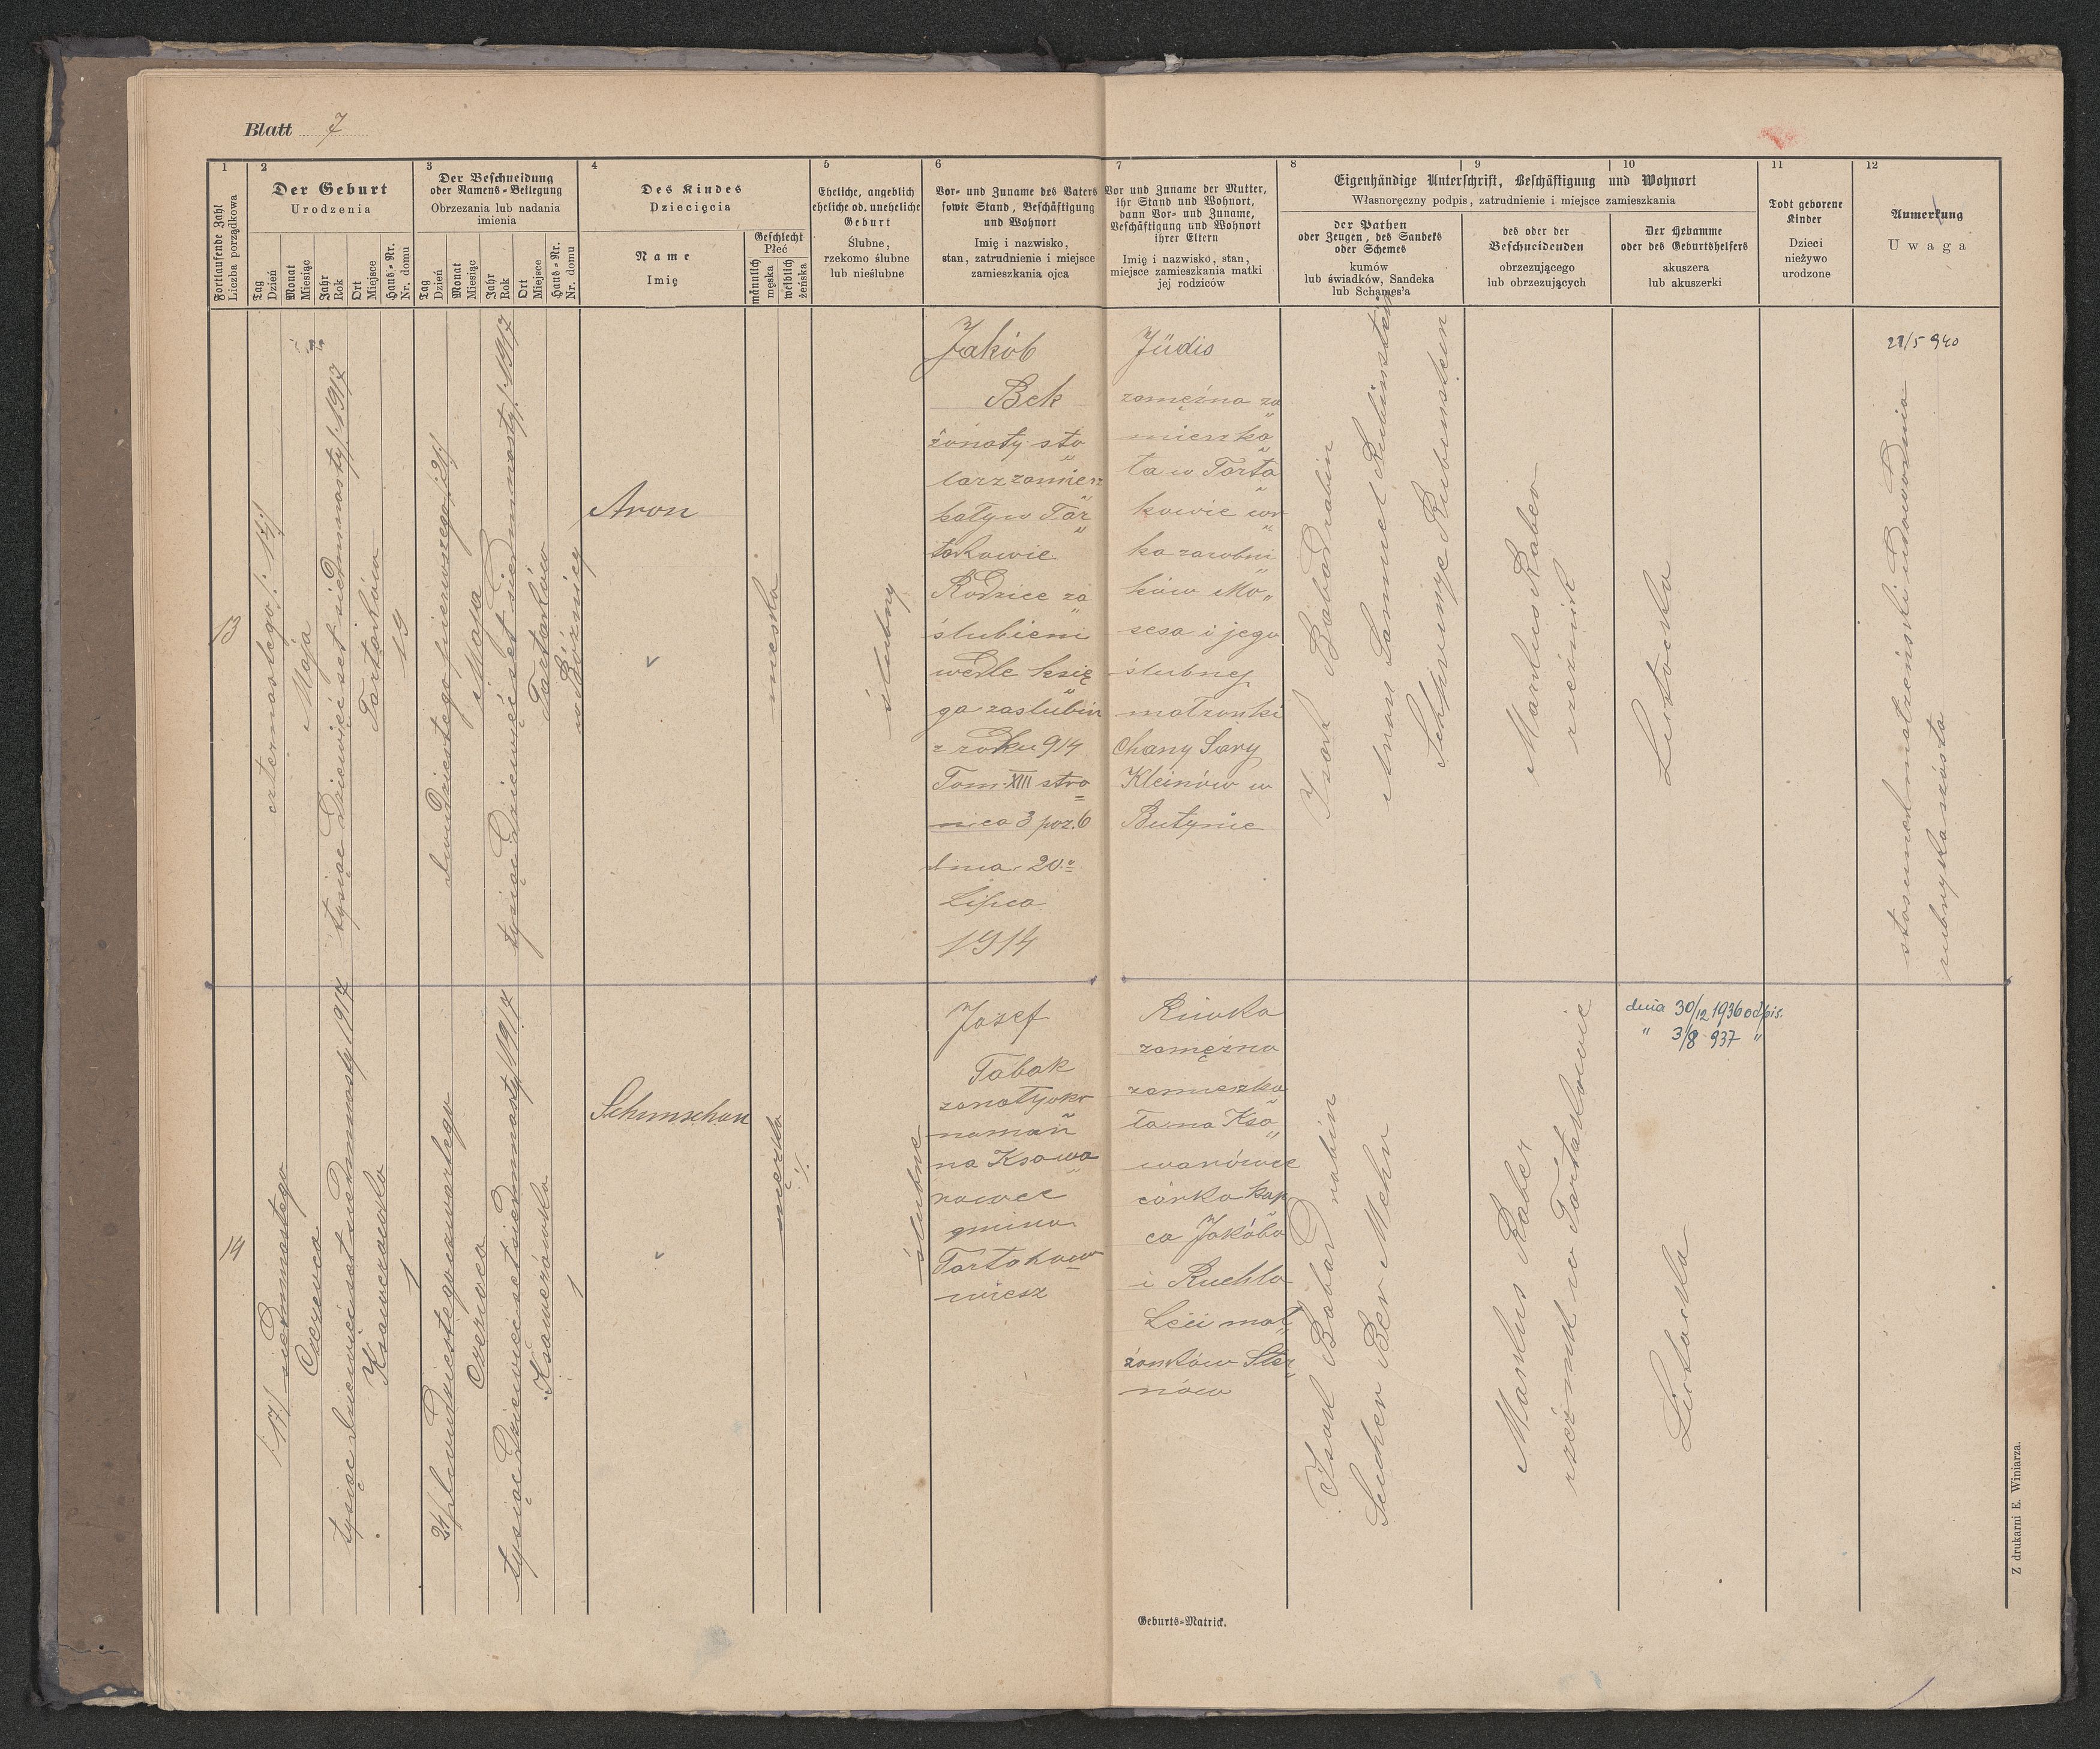 Blatt 7
1
Fortlaufende Zahl
Liczba porządkowa
2
Der Geburt
Urodzenia
Tag
Dzień
Monat
Miesiąc
Jahr
Rok
Ort
Miejsce
Haus-Nr.
Nr. domu
3
Der Beschneidung
oder Namens-Beilegung
Obrzezania lub nadania
imienia
Tag
Dzień
Monat
Miesiąc
Jahr
Rok
Ort
Miejsce
Haus-Nr.
Nr. domu
4
Des Kindes
Dziecięcia
Name
Imię
Geschlecht
Płeć
männlich
męska
weiblich
żeńska
5
Eheliche, angeblich
eheliche od. uneheliche
Geburt
Ślubne,
rzekomo ślubne
lub nieślubne
6
Vor- und Zuname des Vaters
sowie Stand, Beschäftigung
und Wohnort
Imię i nazwisko,
stan, zatrudnienie i miejsce
zamieszkania ojca
7
Vor und Zuname der Mutter,
ihr Stand und Wohnort,
dann Vor- und Zuname,
Beschäftigung und Wohnort
ihrer Eltern
Imię i nazwisko, stan,
miejsce zamieszkania matki
jej rodziców
Eigenhändige Unterschrift, Beschäftigung und Wohnort
Własnoręczny podpis, zatrudnienie i miejsce zamieszkania
8
der Pathen
oder Zeugen, des Sandeks
oder Schemes
kumów
lub świadków, Sandeka
lub Schames'a
9
des oder der
Beschneidenden
obrzezującego
lub obrzezujących
10
Der Hebamme
oder des Geburtshelfers
akuszera
lub akuszerki
11
Todt geborene
Kinder
Dzieci
nieżywo
urodzone
12
Anmerkung
Uwaga
13
czternastego /: 14 :/
Maja
tysiąc dziewięćset siedmnasty /: 1917
Tartaków
19
dwudziestego pierwszego /: 21 :/
Maja
tysiąc dziewięćset siedmnasty /: 1917
Tartaków
w Bóżnicy
Aron
męska
ślubny
Jakób
Bek
żonaty sto
larz zamiesz
kały w Tar
takowie
Rodzice za
ślubieni
wedle księ
ga zaslubin
z roku 914
Tom XIII stro
nica 3 poz. 6
dnia 20
Lipca
1914
Jüdis
zamężna za
mieszka
ła w Tarta
kowie cór
ka zarobni
ków Mo
sesa i jego
ślubnej
małżonki
Chany Sary
Kleinów w
Butynie
Izak Babad rabin
Aron Samuel Rubinstein
Schlvimye Rubinstein
Markus Raber
rzeźnik
Listocka
21/5 940
stosunek małżeński udowodnia
rubryka szósta
14
/17/ siedmnastego
Czerwca
tysiąc dziewięćset siedmnasty 1917
Ksawerówka
1
24/ dwudziestego czwartego
Czerwca
tysiąc dziewięćset siedmnasty /1917
Ksawerówka
1
Schimschon
męzka
ślubne
Jozef
Tabak
żonaty eko
noman
na Ksawe
rówce
gmina
Tartakow
wiesz
Riwka
zamężna
zamieszka
ła na Ksa
werówce
córka kup
ca Jakóba
i Ruchla
Leii mał
żonków Ster
nów
Izak Babad rabin
Secher Ber Mehr
Markus Raber
rzeźnik w Tartakowie
Listocka
dnia 30/12 1936 odpis.
" 3/8 937 "
Geburts-Matrick.
Z drukarni E. Winiarza.